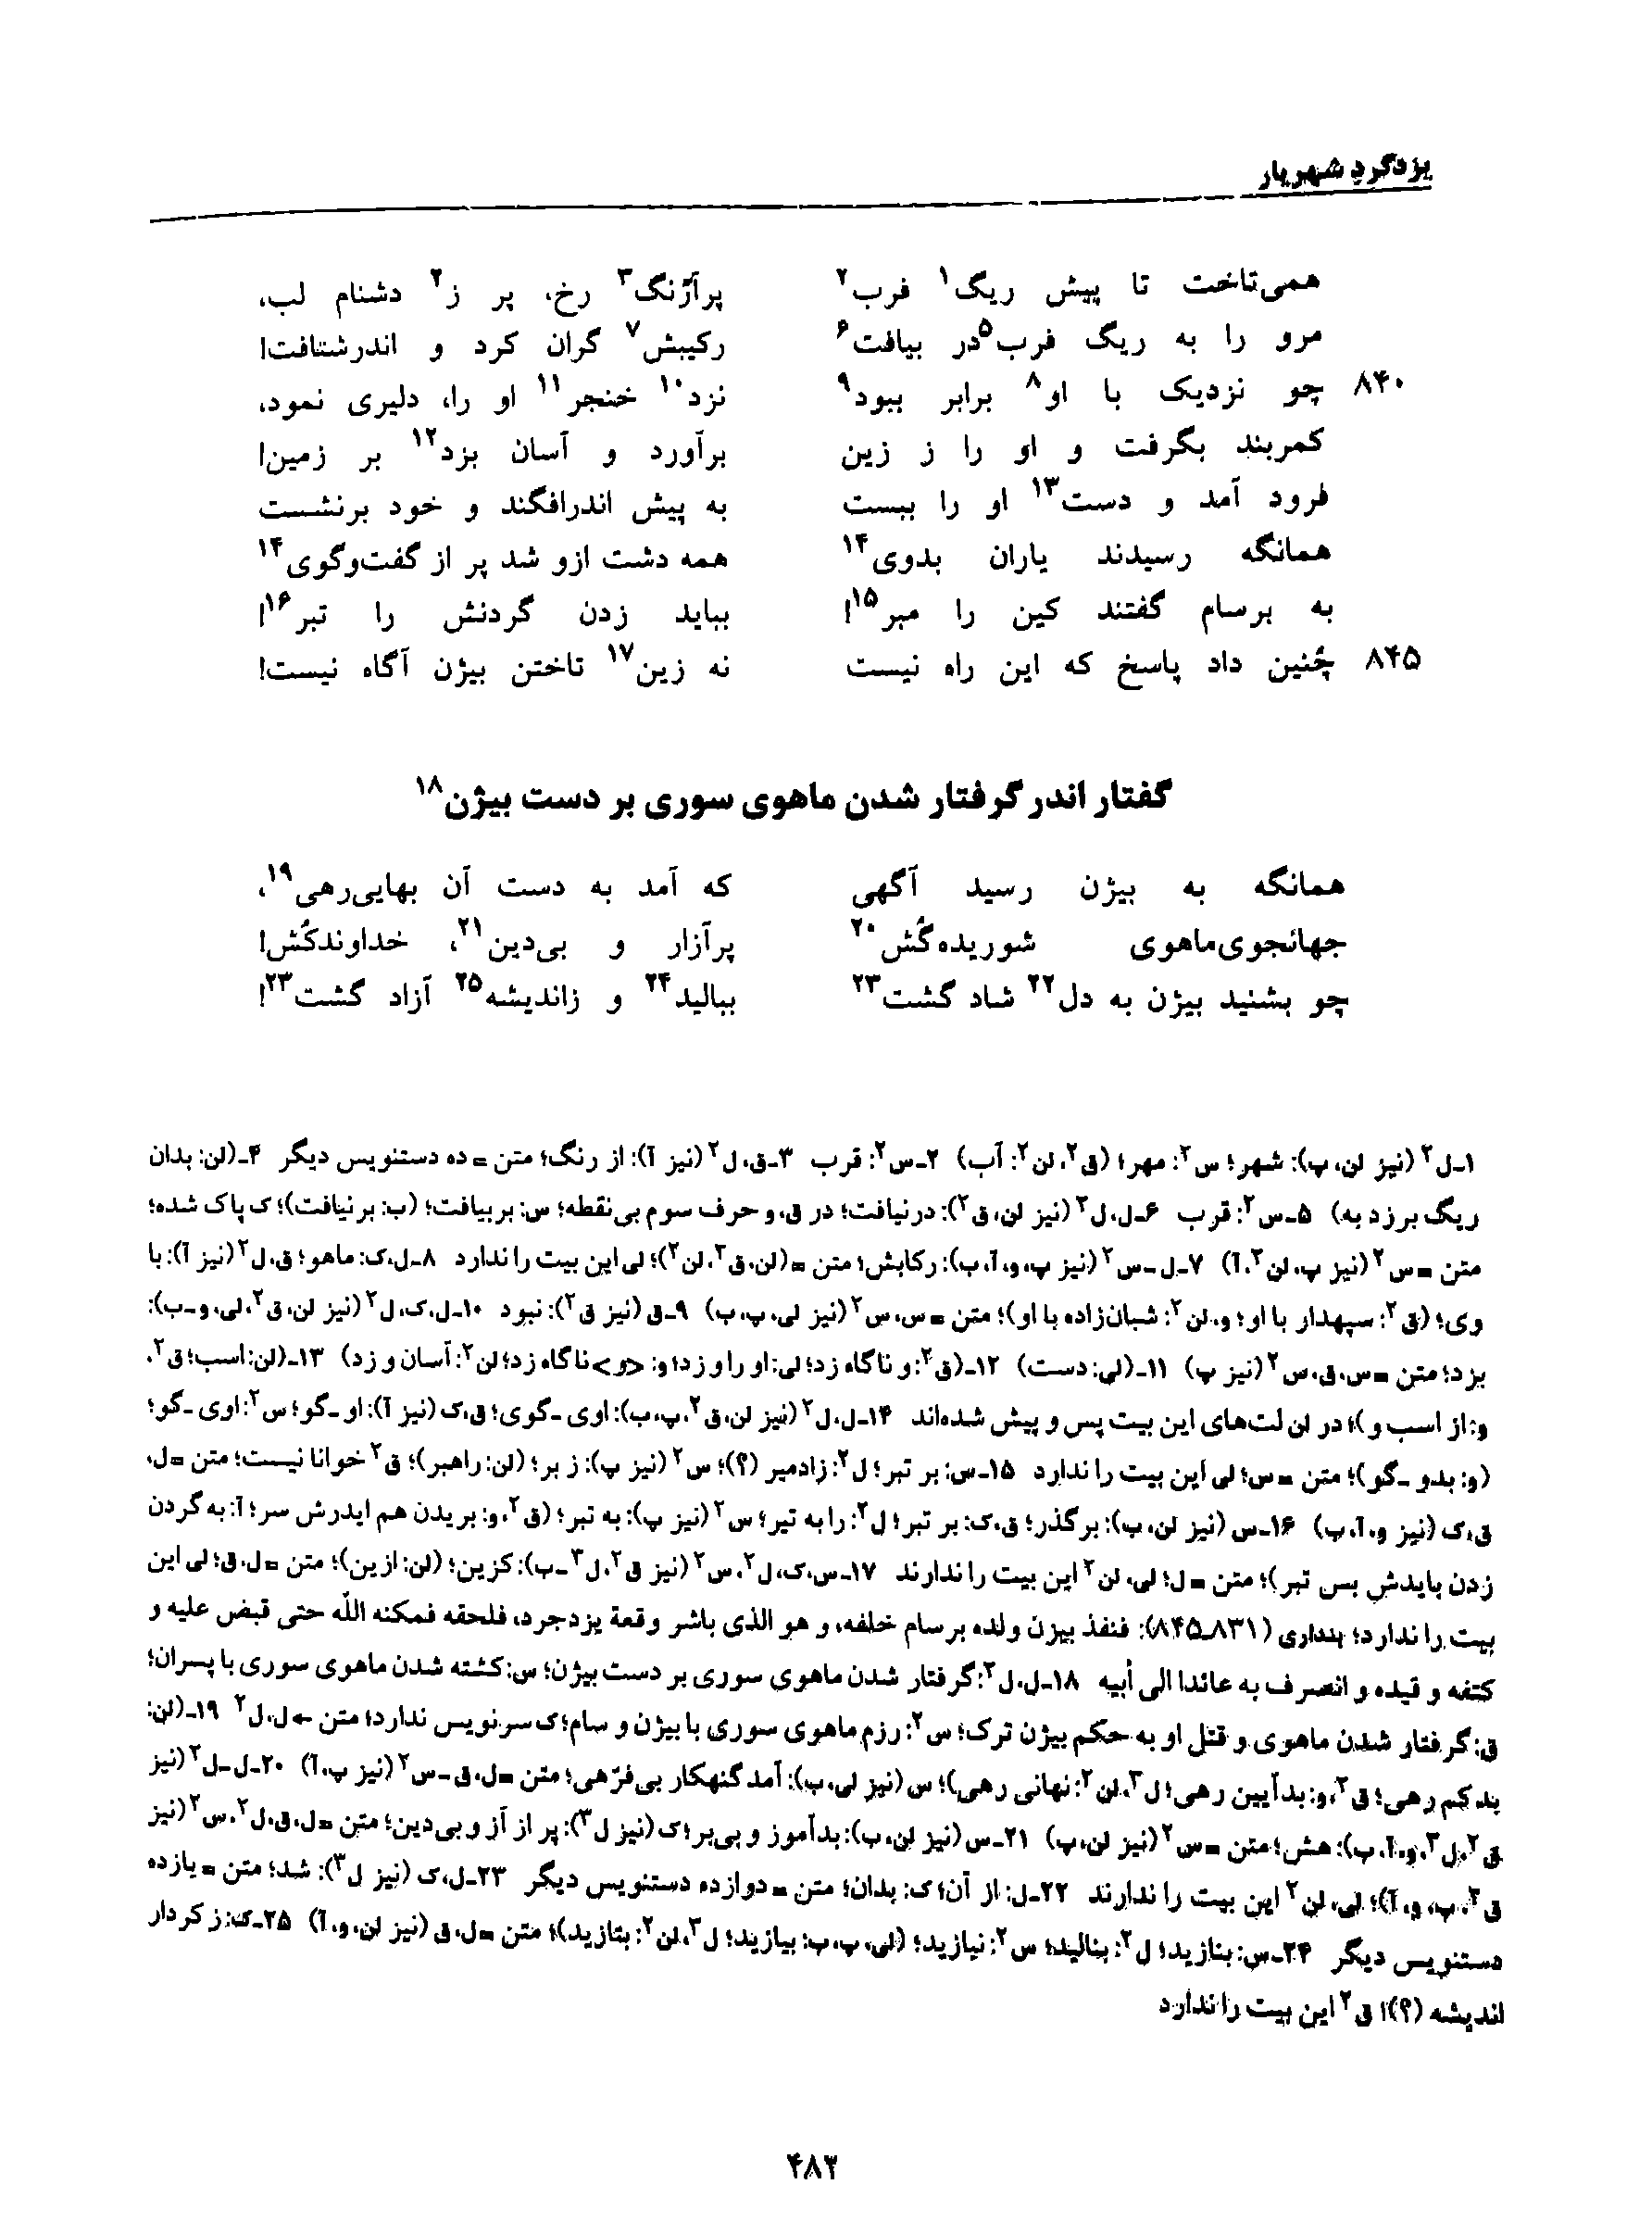 یزدگرد شهریار
همی‌تاخت تا پیش ریگ۱ فرب۲ پرآژنگ۳ رخ، پر ز۴ دشنام لب،
مرو را به ریگ فرب۵ در بیافت۶ رکیبش۷ گران کرد و اندرشتافت!
۸۴۰ چو نزدیک با او۸ برابر ببود۹ نزد۱۰ خنجر۱۱ او را، دلیری نمود،
کمربند بگرفت و او را ز زین برآورد و آسان بزد۱۲ بر زمین!
فرود آمد و دست۱۳ او را ببست به پیش اندرافگند و خود برنشست
همانگه رسیدند یاران بدوی۱۴ همه دشت ازو شد پر از گفت‌وگوی۱۴
به برسام گفتند کین را مبر۱۵! بباید زدن گردنش را تبر۱۶!
۸۴۵ چُنین داد پاسخ که این راه نیست نه زین۱۷ تاختن بیژن آگاه نیست!
گفتار اندر گرفتار شدن ماهوی سوری بر دست بیژن۱۸
همانگه به بیژن رسید آگهی که آمد به دست آن بهایی‌رهی۱۹،
جهانجوی‌ماهوی شوریده‌کُش۲۰ پرآزار و بی‌دین۲۱، خداوندکُش!
چو بشنید بیژن به دل۲۲ شاد گشت۲۳ ببالید۲۴ و زاندیشه۲۵ آزاد گشت۲۳!
۱ـ ل۲ (نیز لن، پ): شهر؛ س۲: مهر؛ (ق۲، لن۲: آب) ۲ـ س۲: قرب ۳ـ ق، ل۲ (نیز آ): از رنگ؛ متن = ده دستنویس دیگر ۴ـ (لن: بدان
ریگ برزد به) ۵ـ س۲: قرب ۶ـ ل، ل۲ (نیز لن، ق۲): درنیافت؛ در ق، و حرف سوم بی‌نقطه؛ س: بربیافت؛ (ب: برنیافت)؛ ک پاک شده؛
متن = س۲ (نیز پ، لن۲، آ) ۷ـ ل ـ س۲ (نیز پ، و، آ، ب): رکابش؛ متن = (لن، ق۲، لن۲)؛ لی این بیت را ندارد ۸ـ ل، ک: ماهو؛ ق، ل۲ (نیز آ): با
وی؛ (ق۲: سپهدار با او؛ و، لن۲: شبان‌زاده با او)؛ متن = س، س۲ (نیز لی، پ، ب) ۹ـ ق (نیز ق۲): نبود ۱۰ـ ل، ک، ل۲ (نیز لن، ق۲، لی، و ـ ب):
بزد؛ متن = س، ق، س۲ (نیز پ) ۱۱ـ (لی: دست) ۱۲ـ (ق۲: و ناگاه زد؛ لی: او را و زد؛ و: <و> ناگاه زد؛ لن۲: آسان و زد) ۱۳ـ (لن: اسب؛ ق۲،
و: از اسب و)؛ در لن لت‌های این بیت پس و پیش شده‌اند ۱۴ـ ل، ل۲ (نیز لن، ق۲، پ، ب): اوی ـ گوی؛ ق، ک (نیز آ): او ـ گو؛ س۲: اوی ـ گو؛
(و: بدو ـ گو)؛ متن = س؛ لی این بیت را ندارد ۱۵ـ س: بر تبر؛ ل۲: زادمیر (؟)؛ س۲ (نیز پ): ز بر؛ (لن: راهبر)؛ ق۲ خوانا نیست؛ متن = ل،
ق، ک (نیز و، آ، ب) ۱۶ـ س (نیز لن، ب): برگذر؛ ق، ک: بر تبر؛ ل۲: را به تیر؛ س۲ (نیز پ): به تبر؛ (ق۲، و: بریدن هم ایدرش سر؛ آ: به گردن
زدن بایدش بس تبر)؛ متن = ل؛ لی، لن۲ این بیت را ندارند ۱۷ـ س، ک، ل۲، س۲ (نیز ق۲، ل۳ ـ ب): کزین؛ (لن: ازین)؛ متن = ل، ق؛ لی این
بیت را ندارد؛ بنداری (۸۳۱ـ۸۴۵): فنفذ بیژن ولده برسام خلفه، و هو الذی باشر وقعة یزدجرد، فلحقه فمکنه اللّه حتی قبض علیه و
کتفه و قیده و انصرف به عائدا الی أبیه ۱۸ـ ل، ل۲: گرفتار شدن ماهوی سوری بر دست بیژن؛ س: کشته شدن ماهوی سوری با پسران؛
ق: گرفتار شدن ماهوی و قتل او به حکم بیژن ترک؛ س۲: رزم ماهوی سوری با بیژن و سام؛ ک سرنویس ندارد؛ متن ← ل، ل۲ ۱۹ـ (لن:
بدکم رهی؛ ق۲، و: بدآیین رهی؛ ل۳، لن۲: نهانی رهی)؛ س (نیز لی، ب): آمد گنهکار بی‌فرّهی؛ متن = ل، ق ـ س۲ (نیز پ، آ) ۲۰ـ ل ـ ل۲ (نیز
ق۲، ل۳، و، آ، ب): هش؛ متن = س۲ (نیز لن، پ) ۲۱ـ س (نیز لن، ب): بدآموز و بی‌بر؛ ک (نیز ل۳): پر از آز و بی‌دین؛ متن = ل، ق، ل۲، س۲ (نیز
ق۲، پ، و، آ)؛ لی، لن۲ این بیت را ندارند ۲۲ـ ل: از آن؛ ک: بدان؛ متن = دوازده دستنویس دیگر ۲۳ـ ل، ک (نیز ل۳): شد؛ متن = یازده
دستنویس دیگر ۲۴ـ س: بنازید؛ ل۲: بنالید؛ س۲: نیازید؛ (لی، پ، ب: بیازید؛ ل۳، لن۲: بتازید)؛ متن = ل، ق (نیز لن، و، آ) ۲۵ـ ک: ز کردار
اندیشه (؟)؛ ق۲ این بیت را ندارد
۴۸۳